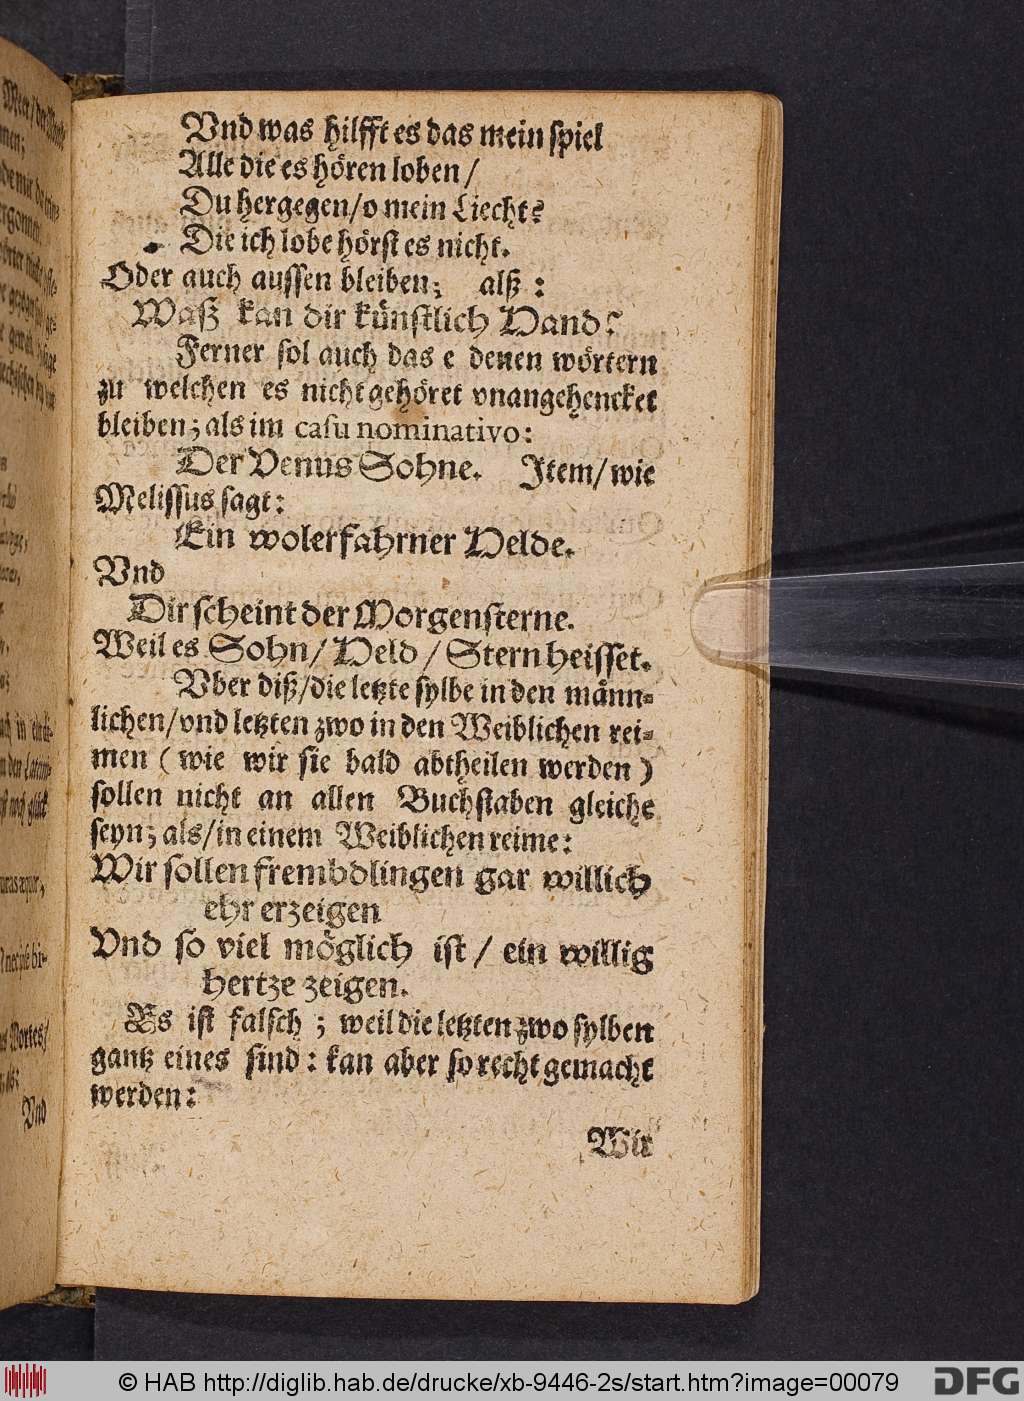 Vnd was hilfft es das mein spiel
Alle die es hören loben /
Du hergegen / o mein Liecht?
Die ich lobe hörst es nicht.
Oder auch aussen bleiben; alß :
Waß kan dir künstlich Hand?
Ferner sol auch das e denen wörtern
zu welchen es nicht gehöret vnangehencket
bleiben; als im casu nominativo:
Der Venus Sohne. Item / wie
Melissus sagt:
Ein wolerfahrner Helde.
Vnd
Dir scheint der Morgensterne.
Weil es Sohn / Held / Stern heisset.
Vber diß / die letzte sylbe in den männ-
lichen / vnd letzten zwo in den Weiblichen rei-
men ( wie wir sie bald abtheilen werden )
sollen nicht an allen Buchstaben gleiche
seyn; als / in einem Weiblichen reime:
Wir sollen frembdlingen gar willich
ehr erzeigen
Vnd so viel möglich ist / ein willig
hertze zeigen.
Es ist falsch ; weil die letzten zwo sylben
gantz eines sind : kan aber so recht gemacht
werden:
Wir
© HAB http://diglib.hab.de/drucke/xb-9446-2s/start.htm?image=00079
DFG